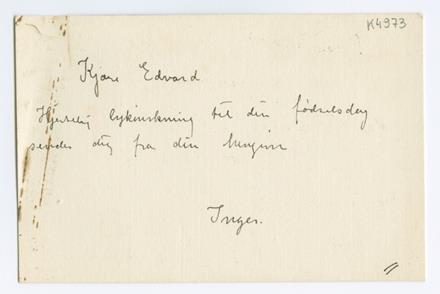 K4973
Kjære Edvard
Hjertelig lykønskning til din fødselsdag
sendes dig fra din
Inger.